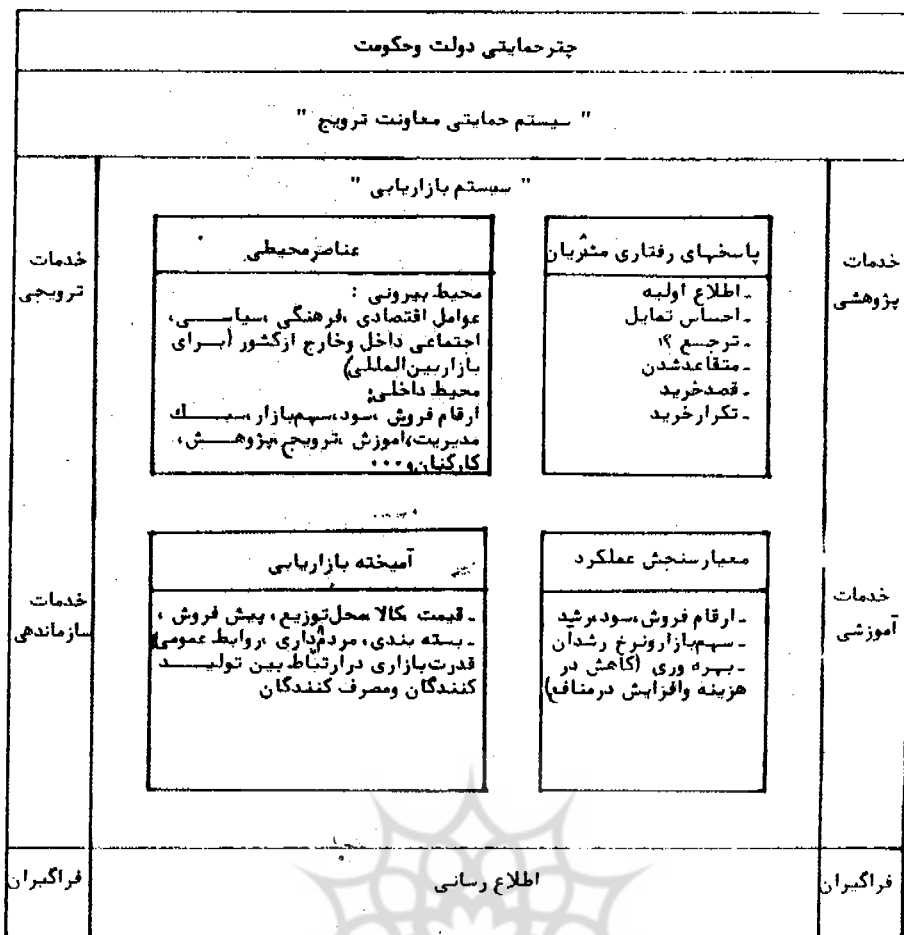 چترحمایتی دولت وحکومت
" سیستم حمایتی معاونت ترویج "
" سیستم بازاریابی "
خدمات
پژوهشی
پاسخهای رفتاری مشتریان
ـ اطلاع اولیه
ـ احساس تمایل
ـ ترجیح
ـ متقاعدشدن
ـ قصدخرید
ـ تکرارخرید
عناصرمحیطی
محیط بیرونی :
عوامل اقتصادی ،فرهنگی ،سیاسی،
اجتماعی داخل وخارج ازکشور (برای
بازاربین‌المللی)
محیط داخلی:
ارقام فروش ،سود،سهم‌بازار،سبک
مدیریت،آموزش ،ترویجی،پژوهش،
کارکنان،و...
خدمات
ترویجی
خدمات
آموزشی
معیارسنجش عملکرد
ـ ارقام فروش،سود،رشد
ـ سهم‌بازارونرخ رشدآن
ـ بهره وری (کاهش در
هزینه وافزایش درمنافع)
آمیخته بازاریابی
ـ قیمت کالا ،محل‌توزیع، پیش فروش ،
ـ بسته بندی، مردم‌داری ،روابط عمومی،
قدرت‌بازاری درارتباط بین تولید
کنندگان ومصرف کنندگان
خدمات
سازماندهی
فراگیران
اطلاع رسانی
فراگیران